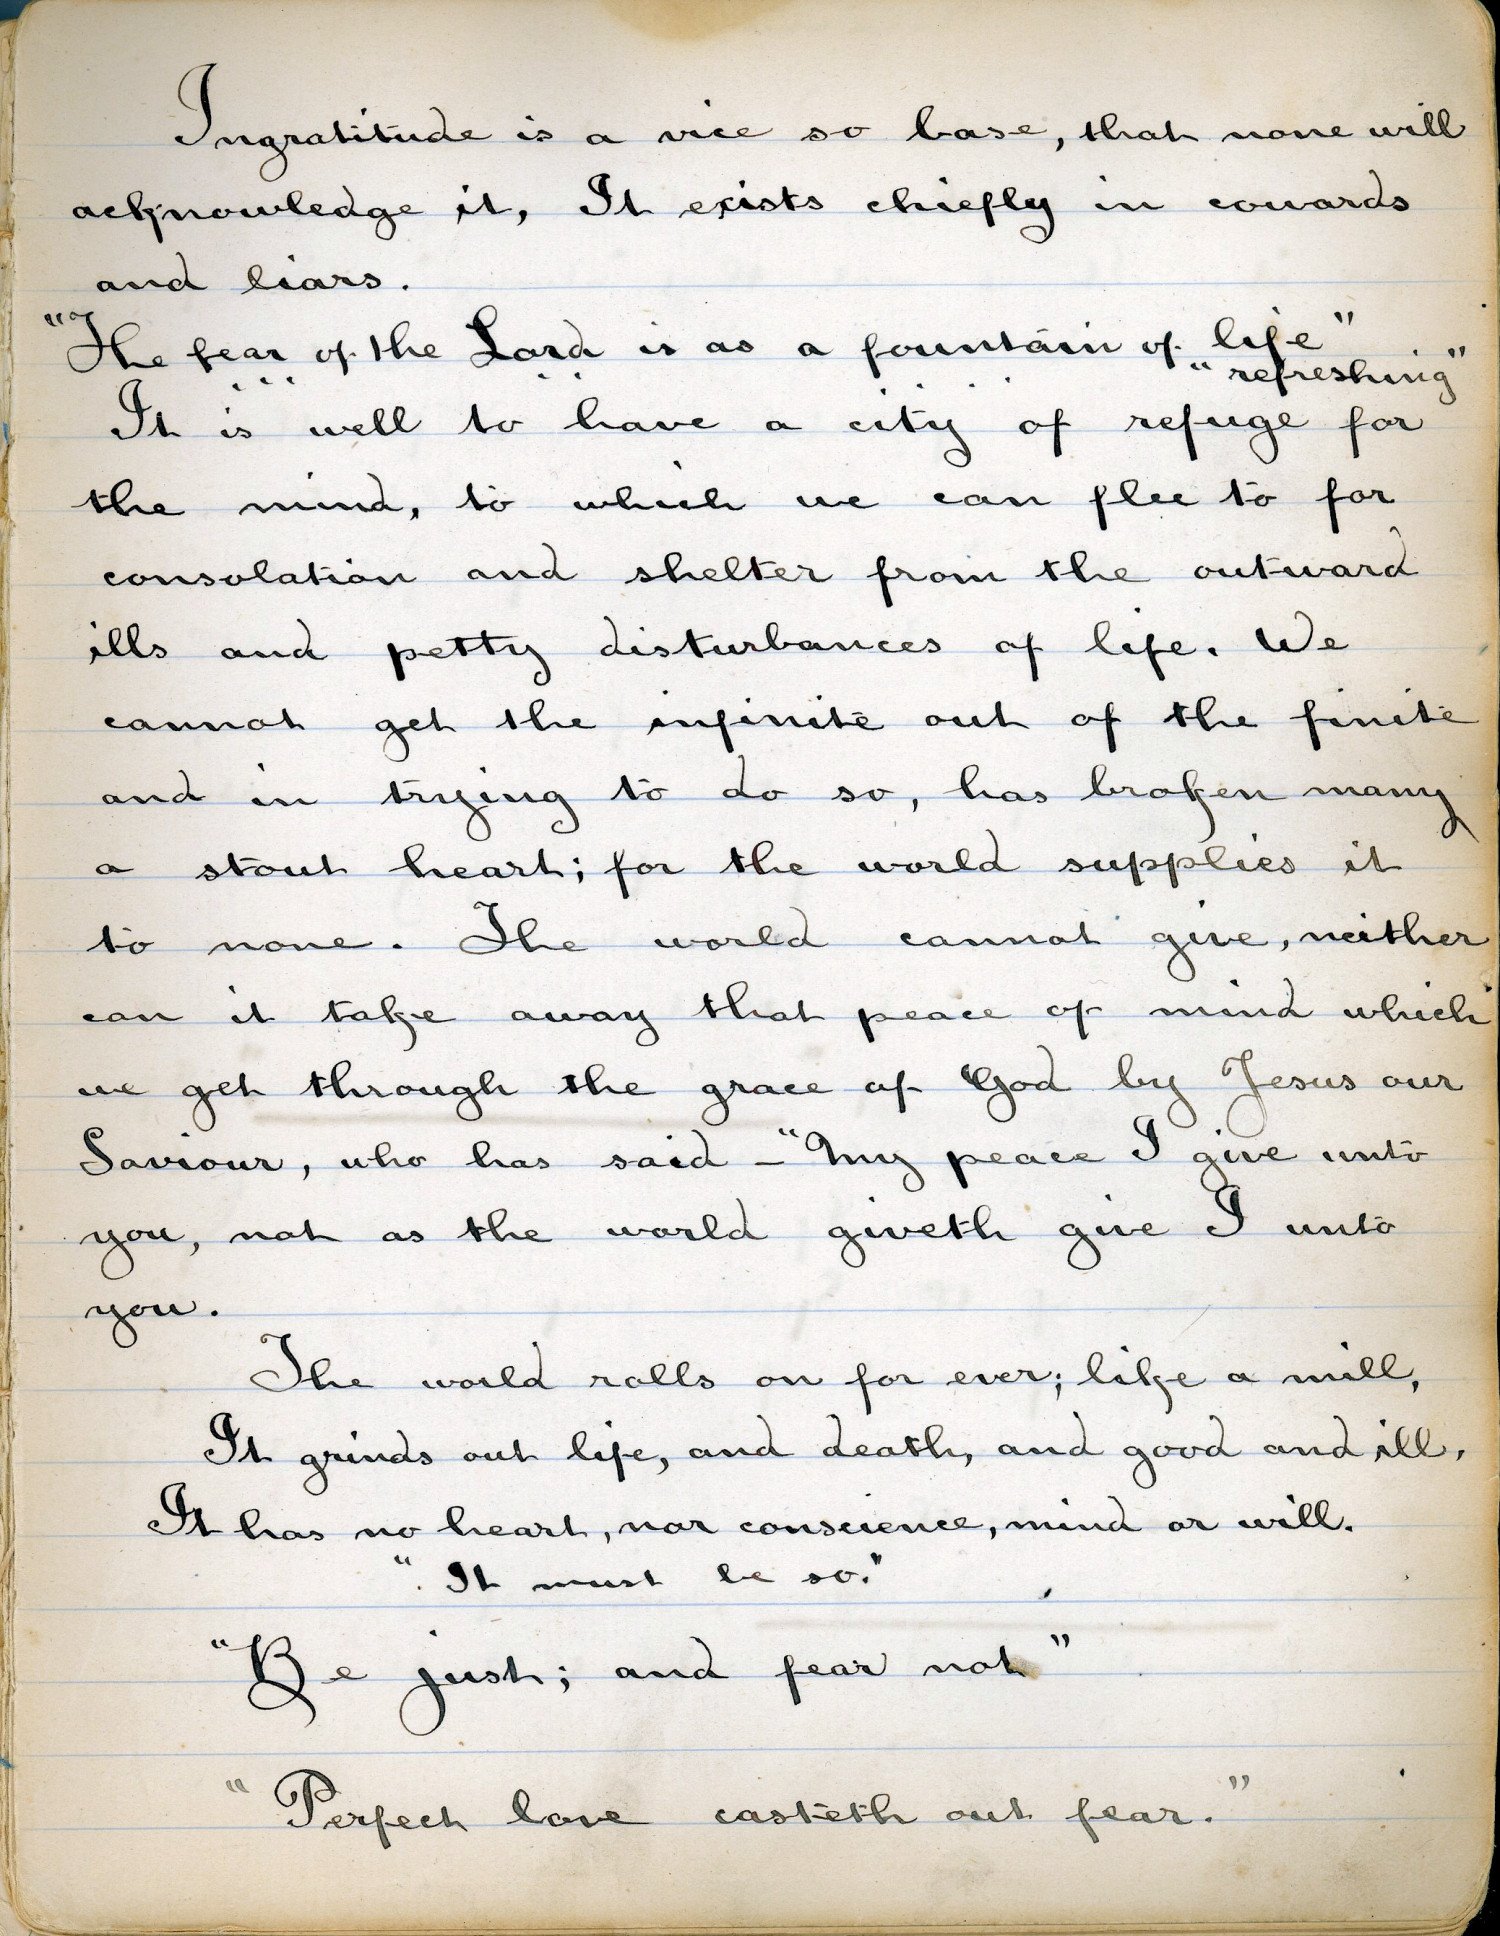 Ingratitude is a vice so base, that none will
acknowledge it, It exists chiefly in cowards
and liars.
"The fear of the Lord is as a fountain of life"
"refreshing"
It is well to have a city of refuge for
the mind, to which we can flee to for
consolation and shelter from the outward
ills and petty disturbances of life. We
cannot get the infinite out of the finite
and in trying to do so, has broken many
a stout heart; for the world supplies it
to none. The world cannot give, neither
can it take away that peace of mind which
we get through the grace of God by Jesus our
Saviour, who has said - "My peace I give unto
you, not as the world giveth give I unto
you.
The world rolls on for ever; like a mill,
It grinds out life, and death, and good and ill,
It has no heart, nor conscience, mind or will.
"It must be so."
"Be just; and fear not"
"Perfect love casteth out fear."